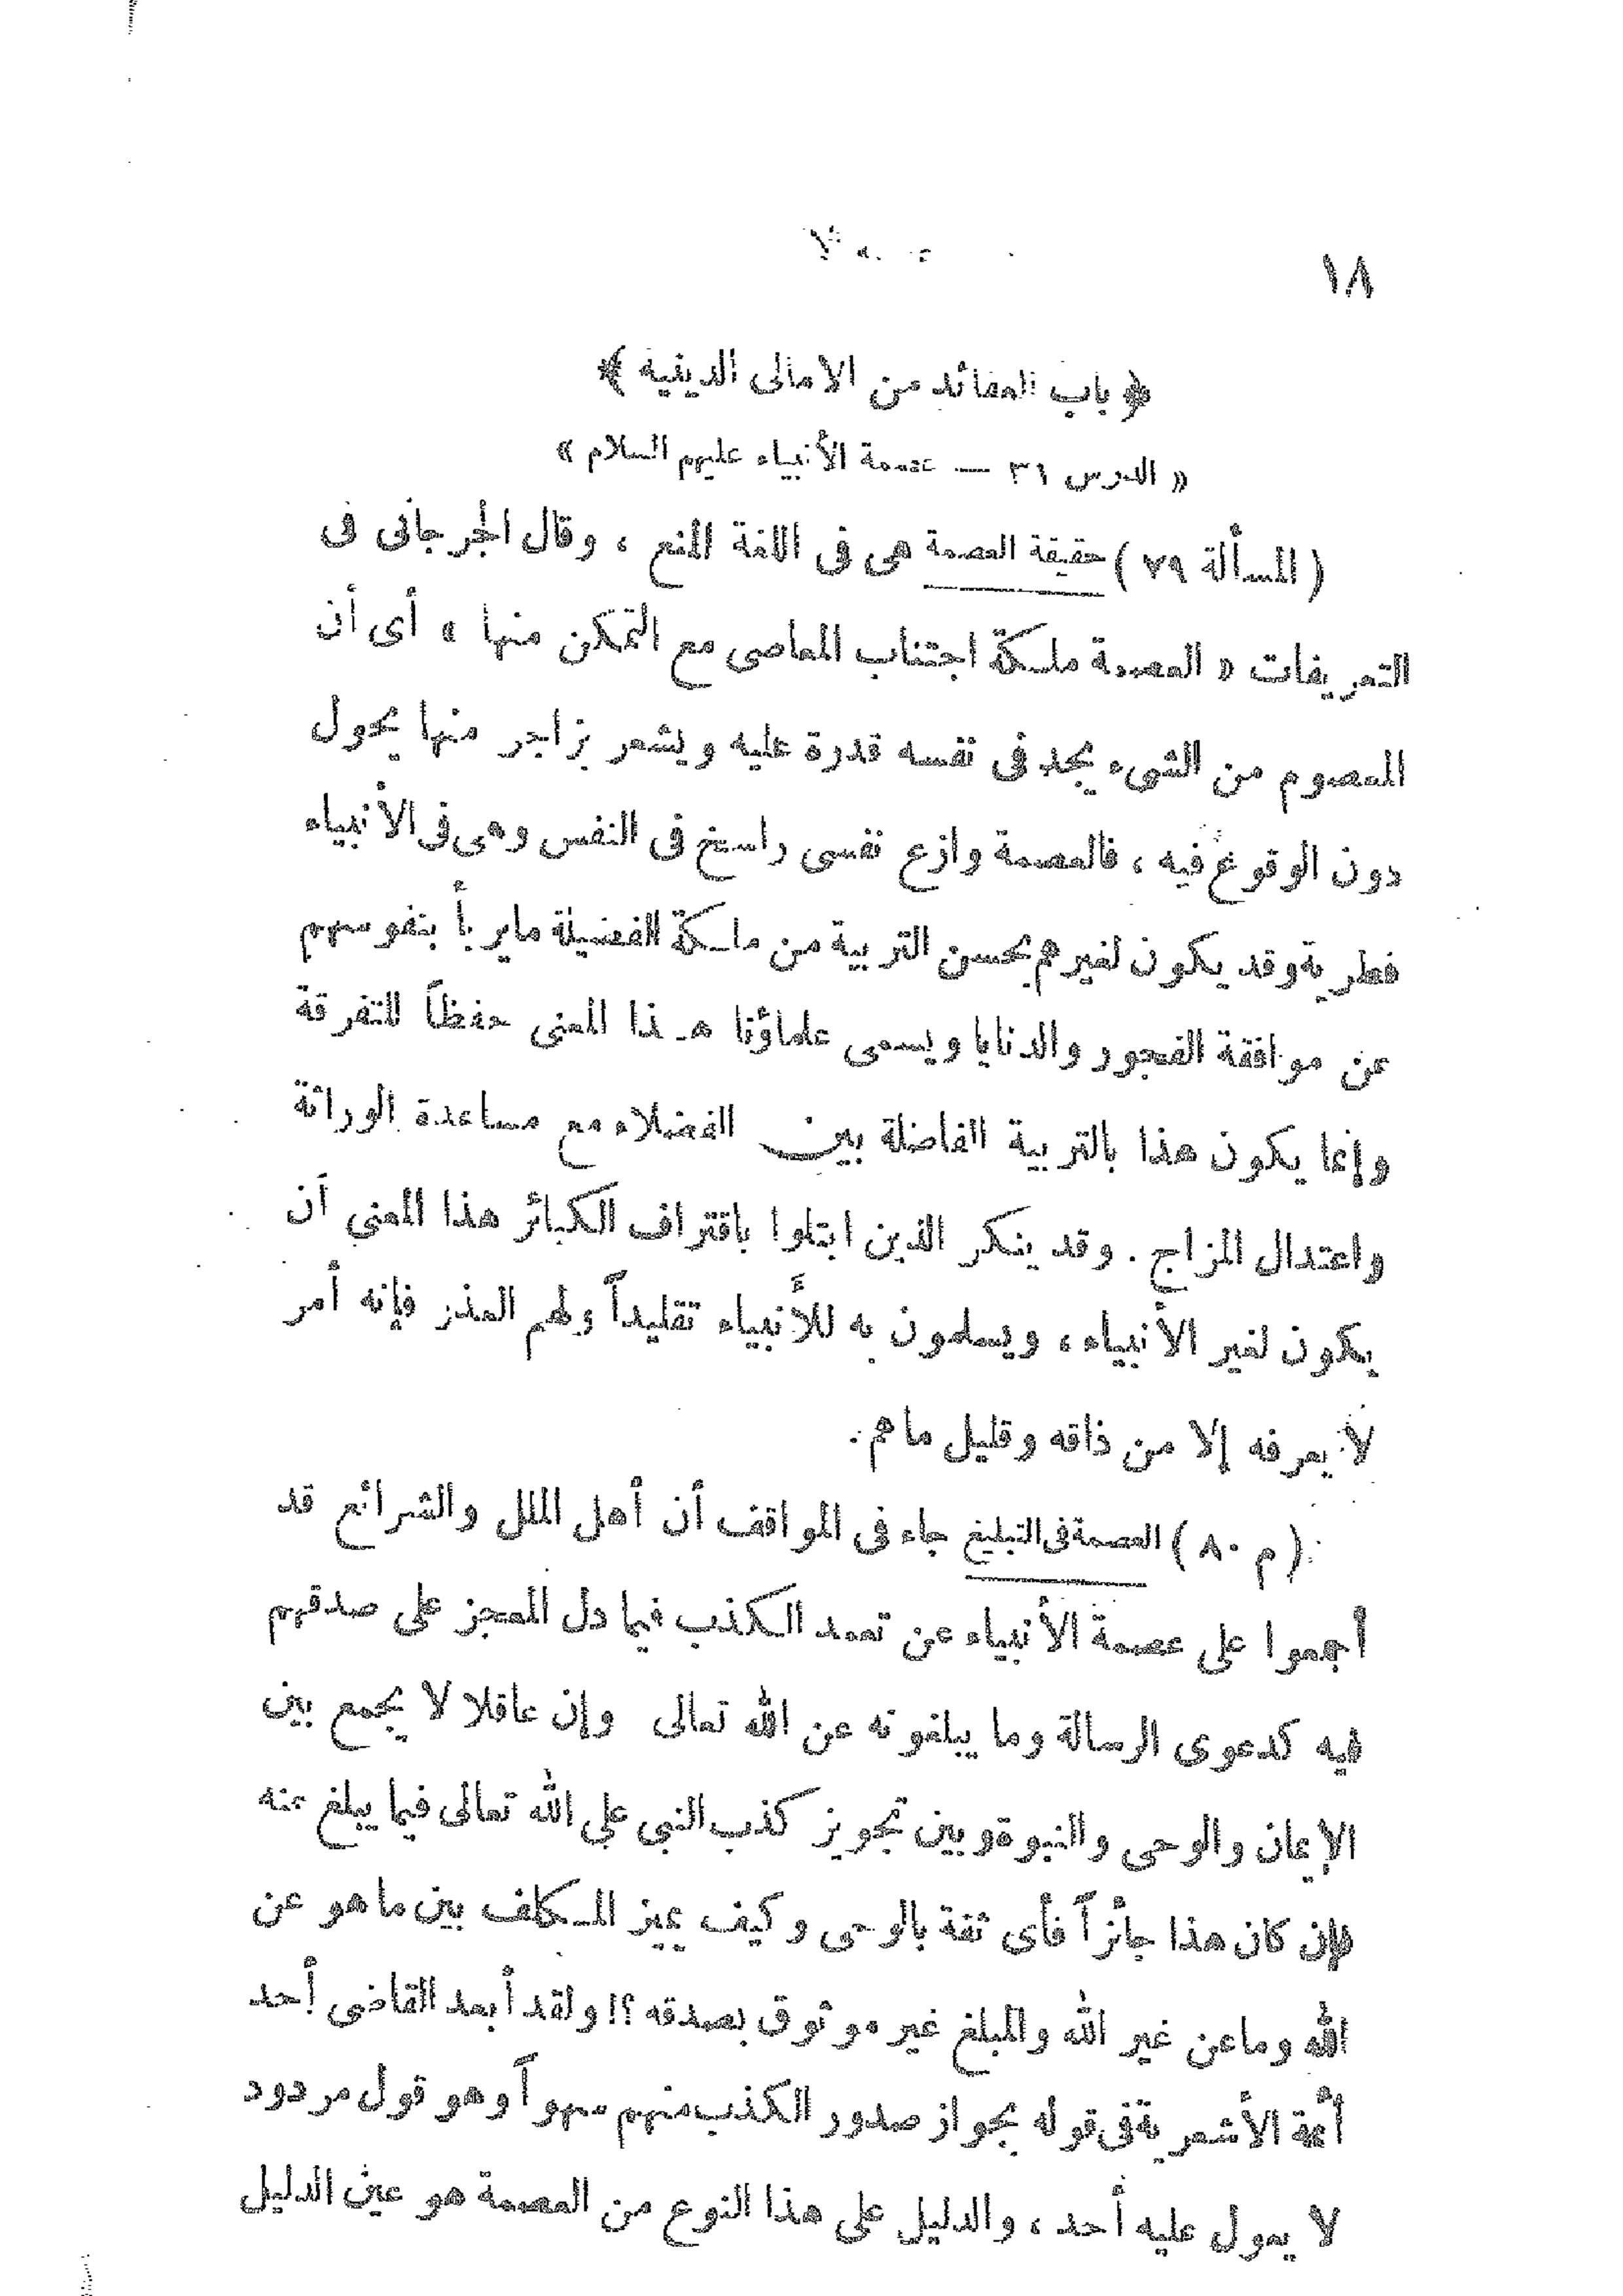 ١٨
﴿ باب العقائد من الامالى الدينية ﴾
« الدرس ٣١ — عصمة الأنبياء عليهم السلام »
( المسألة ٧٩ ) حقيقة العصمة هى فى اللغة المنع ، وقال الجرجانى فى
التعريفات « العصمة ملكة اجتناب المعاصى مع التمكن منها » أى أن
المعصوم من الشىء يجد فى نفسه قدرة عليه ويشعر بزاجر منها يحول
دون الوقوع فيه ، فالعصمة وازع نفسى راسخ فى النفس وهى فى الأنبياء
فطرية وقد يكون لغيرهم بحسن التربية من ملكة الفضيلة مايربأ بنفوسهم
عن موافقة الفجور والدنايا ويسمى علماؤنا هذا المعنى حفظاً للتفرقة
وإنما يكون هذا بالتربية الفاضلة بين الفضلاء مع مساعدة الوراثة
واعتدال المزاج . وقد ينكر الذين ابتلوا باقتراف الكبائر هذا المعنى أن
يكون لغير الأنبياء ، ويسلمون به للأنبياء تقليداً ولهم العذر فإنه أمر
لا يعرفه إلا من ذاقه وقليل ماهم .
( م ٨٠ ) العصمة فى التبليغ جاء فى المواقف أن أهل الملل والشرائع قد
أجمعوا على عصمة الأنبياء عن تعمد الكذب فيما دل المعجز على صدقهم
فيه كدعوى الرسالة وما يبلغونه عن الله تعالى وإن عاقلا لا يجمع بين
الإيمان والوحى والنبوة وبين تجويز كذب النبي على الله تعالى فيما يبلغ عنه
فإن كان هذا جائزاً فأى ثقة بالوحى وكيف يميز المكلف بين ماهو عن
الله وماعن غير الله والمبلغ غير موثوق بصدقه ؟! ولقد أبعد القاضى أحد
أئمة الأشعرية فى قوله بجواز صدور الكذب منهم سهواً وهو قول مردود
لا يعول عليه أحد ، والدليل على هذا النوع من العصمة هو عين الدليل